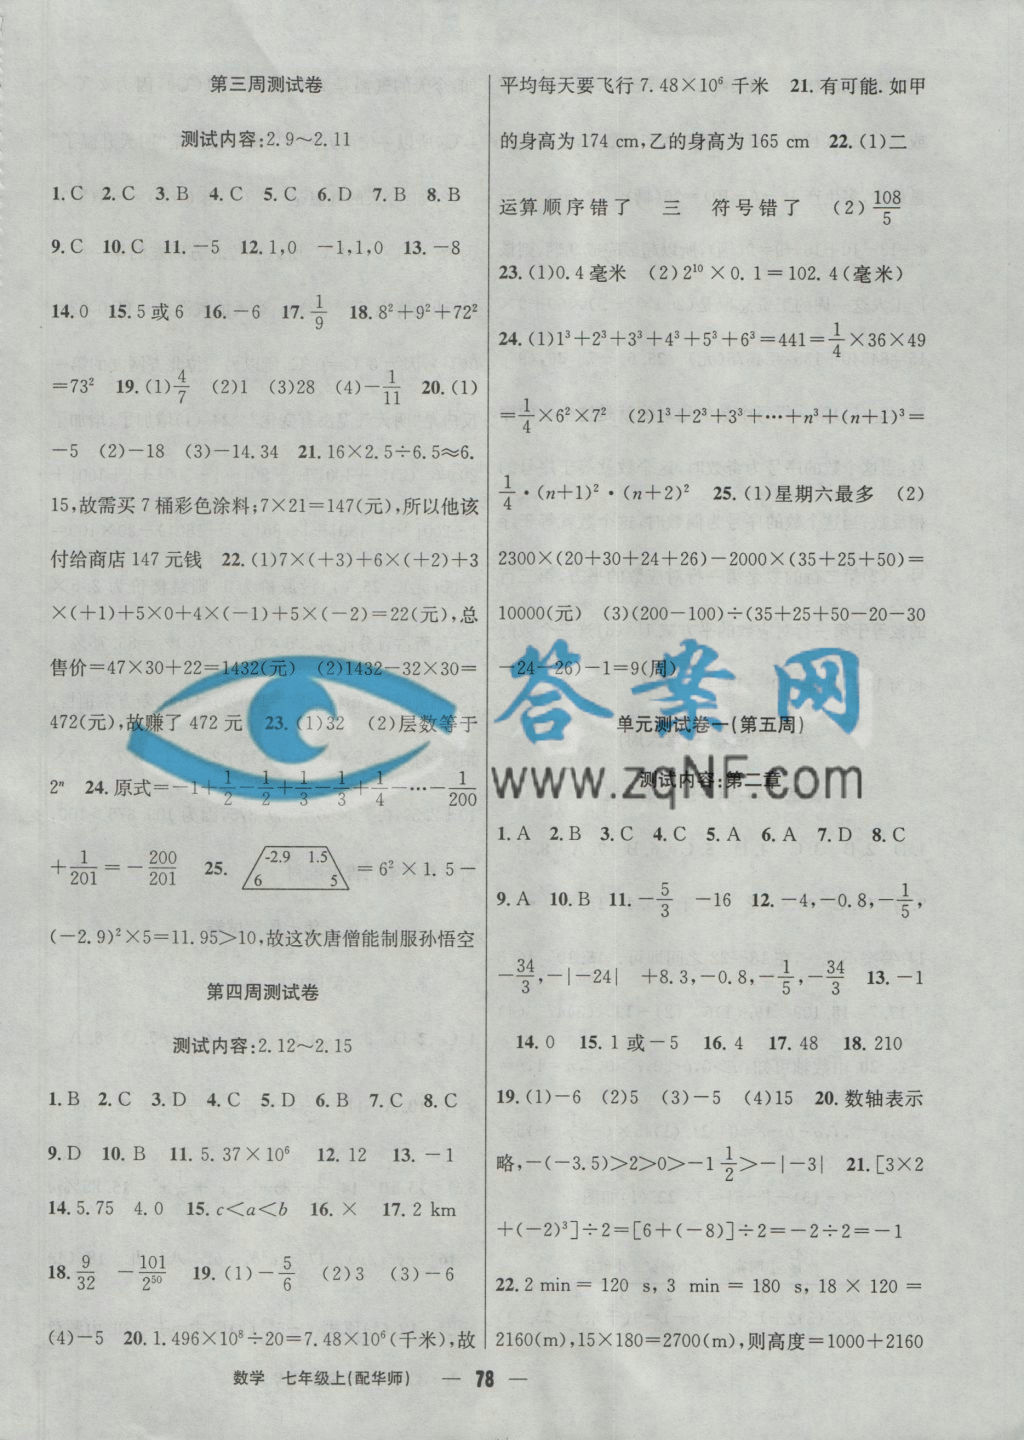 第三周测试卷
测试内容:2.9～2.11
1.C 2.C 3.B 4.C 5.C 6.D 7.B 8.B
9.C 10.C 11.－5 12.1,0 －1,1,0 13.－8
14.0 15.5或6 16.－6 17.1/9 18.8²＋9²＋72²
＝73² 19.(1)4/7 (2)1 (3)28 (4)－1/11 20.(1)
－5 (2)－18 (3)－14.34 21.16×2.5÷6.5≈6.
15,故需买7桶彩色涂料;7×21＝147(元),所以他该
付给商店147元钱 22.(1)7×(＋3)＋6×(＋2)＋3
×(＋1)＋5×0＋4×(－1)＋5×(－2)＝22(元),总
售价＝47×30＋22＝1432(元) (2)1432－32×30＝
472(元),故赚了472元 23.(1)32 (2)层数等于
2ⁿ 24.原式＝－1＋1/2－1/2＋1/3－1/3＋1/4－…－1/200
＋1/201＝－200/201 25. －2.9 1.5 6 5 ＝6²×1.5－
(－2.9)²×5＝11.95>10,故这次唐僧能制服孙悟空
第四周测试卷
测试内容:2.12～2.15
1.B 2.C 3.D 4.C 5.C 6.B 7.C 8.C
9.D 10.B 11.5.37×10⁶ 12.12 13.－1
14.5.75 4.0 15.c<a<b 16.× 17.2 km
18.9/32 －101/2⁵⁰ 19.(1)－5/6 (2)3 (3)－6
(4)－5 20.1.496×10⁸÷20＝7.48×10⁶(千米),故
平均每天要飞行7.48×10⁶千米 21.有可能.如甲
的身高为174 cm,乙的身高为165 cm 22.(1)二
运算顺序错了 三 符号错了 (2)108/5
23.(1)0.4毫米 (2)2¹⁰×0.1＝102.4(毫米)
24.(1)1³＋2³＋3³＋4³＋5³＋6³＝441＝1/4×36×49
＝1/4×6²×7² (2)1³＋2³＋3³＋…＋n³＋(n＋1)³＝
1/4·(n＋1)²·(n＋2)² 25.(1)星期六最多 (2)
2300×(20＋30＋24＋26)－2000×(35＋25＋50)＝
10000(元) (3)(200－100)÷(35＋25＋50－20－30
－24－26)－1＝9(周)
答案网
www.zqNF.com
单元测试卷一(第五周)
测试内容:第二章
1.A 2.B 3.C 4.C 5.A 6.A 7.D 8.C
9.A 10.B 11.－5/3 －16 12.－4,－0.8,－1/5,
－34/3,－|－24| ＋8.3,－0.8,－1/5,－34/3 13.－1
14.0 15.1或－5 16.4 17.48 18.210
19.(1)－6 (2)5 (3)－5 (4)15 20.数轴表示
略,－(－3.5)>2>0>－1 1/2>－|－3| 21.[3×2
＋(－2)³]÷2＝[6＋(－8)]÷2＝－2÷2＝－1
22.2 min＝120 s,3 min＝180 s,18×120＝
2160(m),15×180＝2700(m),则高度＝1000＋2160
数学 七年级上(配华师) — 78 —